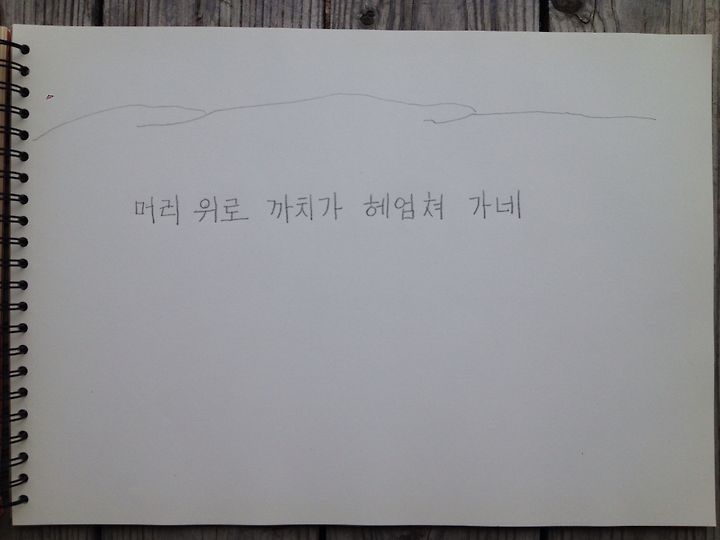 머리 위로 까치가 헤엄쳐 가네